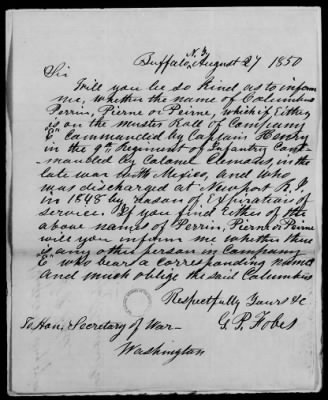 Buffalo, N.Y. August 27 1850
Sir
Will you be so kind as to inform
me, whether the name of Columbus
Perrin, Pierne or Peirne, which if Either
is on the muster Roll of Company
"E" Commanded by Captain Henry
in the 9th Regiment of Infantry Com-
manded by Colonel in the
late war with Mexico, and who
was discharged at Newport R.I.
in 1848 by reason of Expiration of
service. If you find Either of the
above names of Perrin, Pierne or Peirne
will you inform me whether there
is any other person in Company
"E" who bears a corresponding name
and much oblige the said Columbus
Respectfully Yours &c
G. P. Fobes
To Hon. Secretary of War
Washington